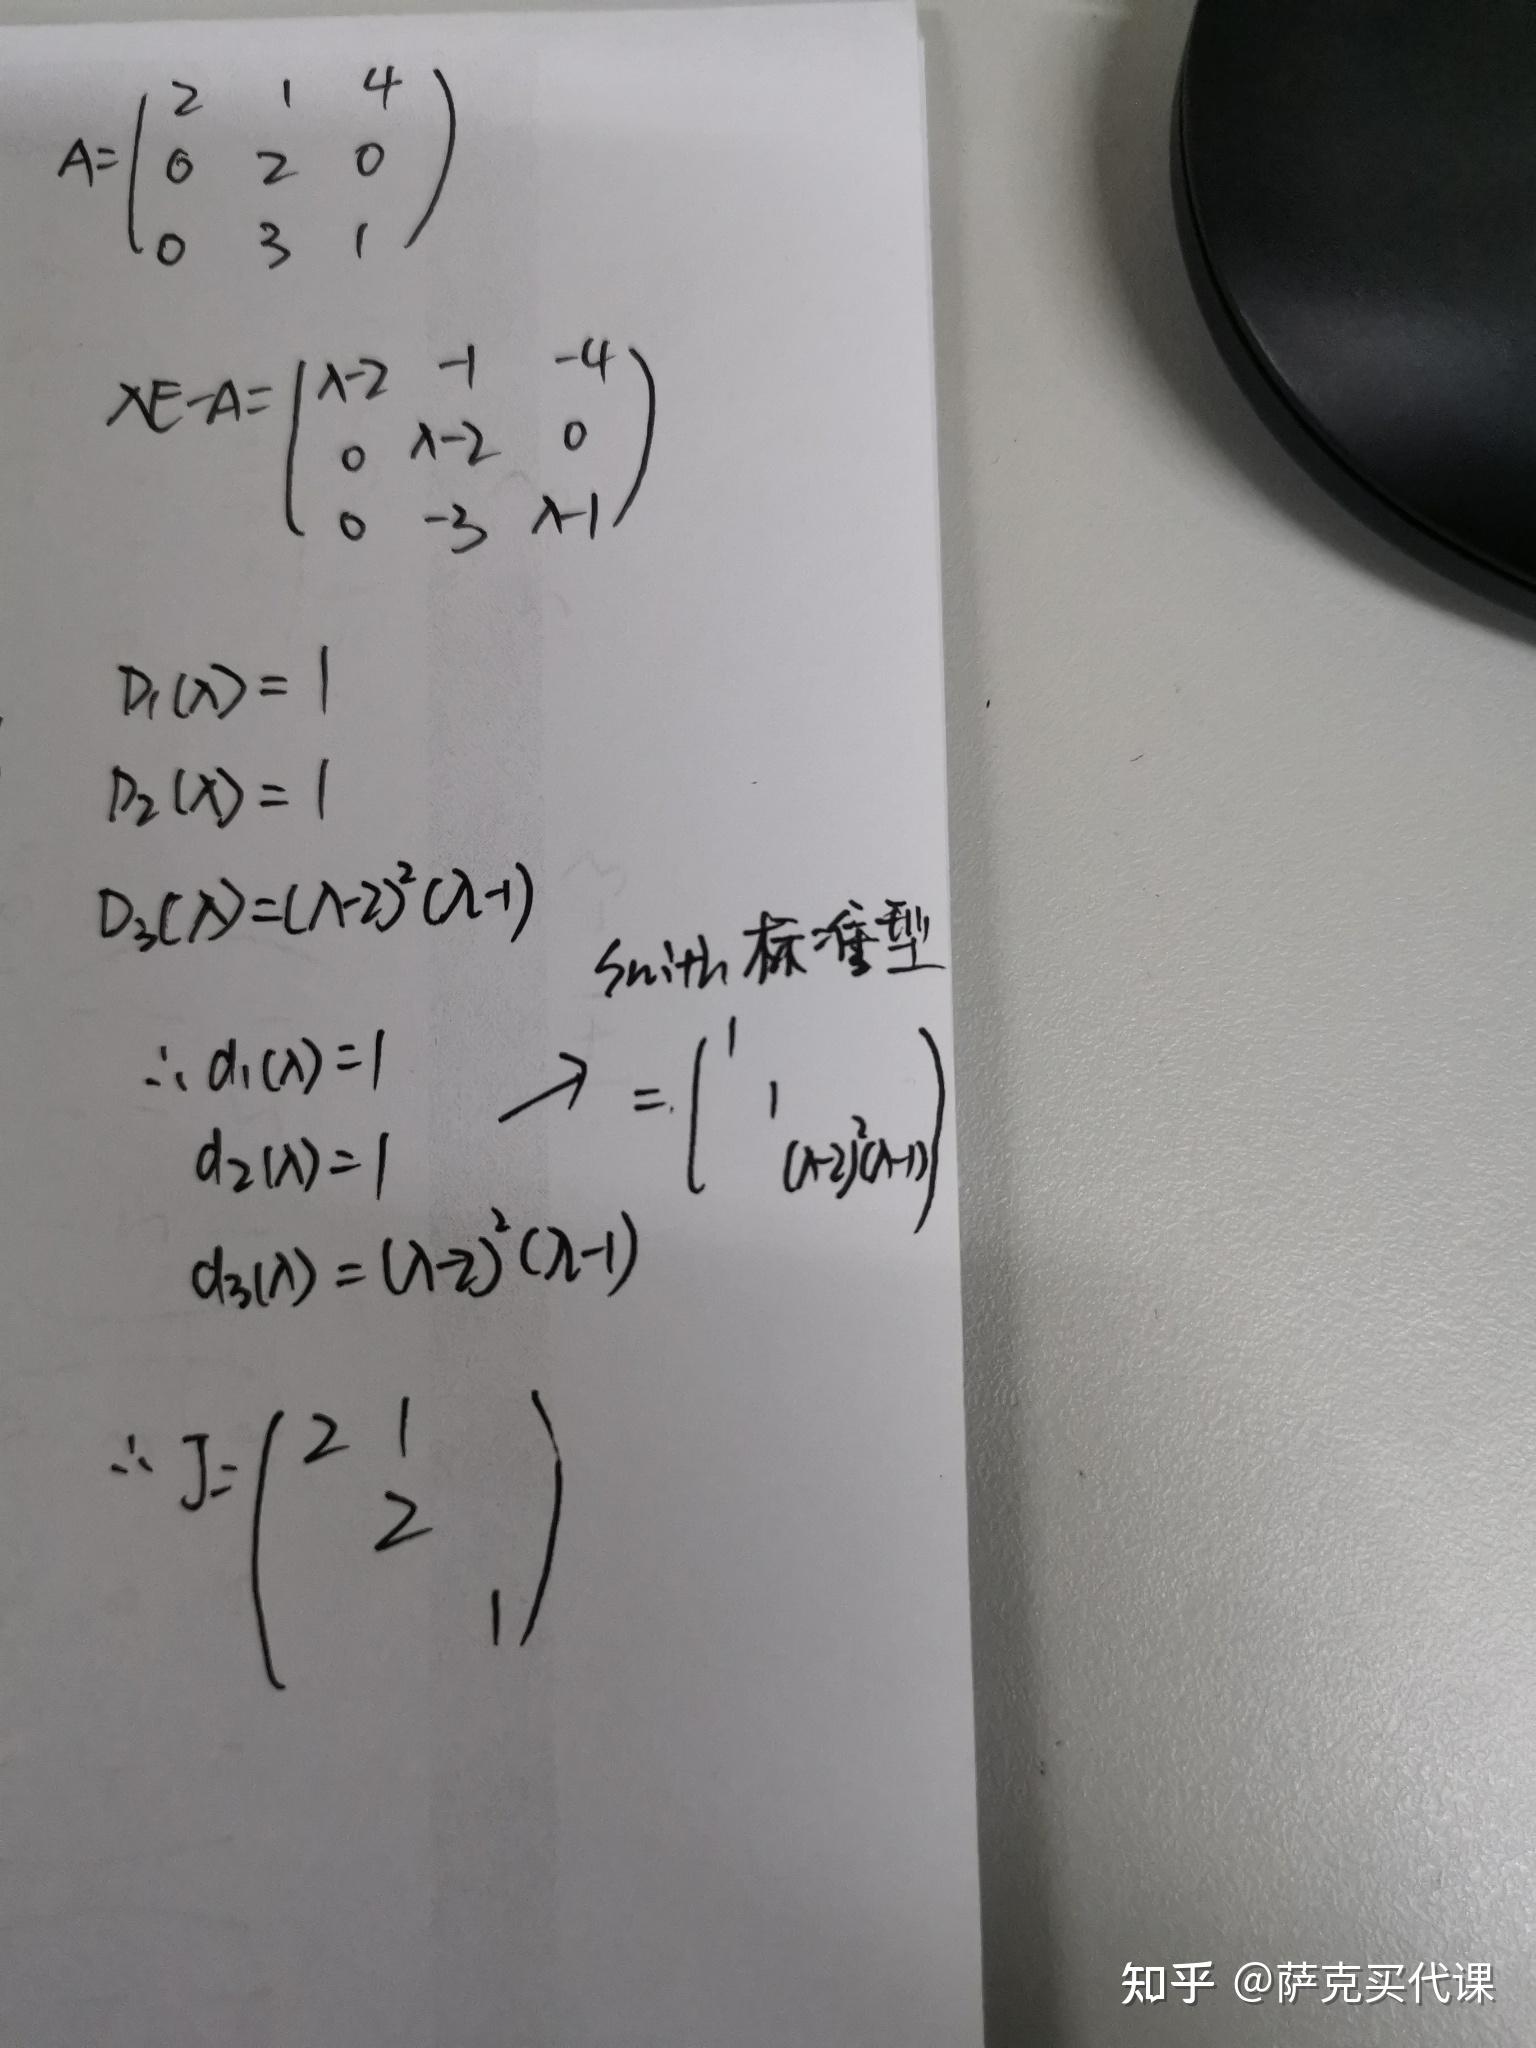 A= ( 2 1 4
0 2 0
0 3 1 )
λE-A= ( λ-2 -1 -4
0 λ-2 0
0 -3 λ-1 )
D₁(λ)=1
D₂(λ)=1
D₃(λ)=(λ-2)²(λ-1)
Smith 标准型
∴ d₁(λ)=1 → = ( 1
1
(λ-2)²(λ-1) )
d₂(λ)=1
d₃(λ)=(λ-2)²(λ-1)
∴ J= ( 2 1
2
1 )
知乎 @萨克买代课